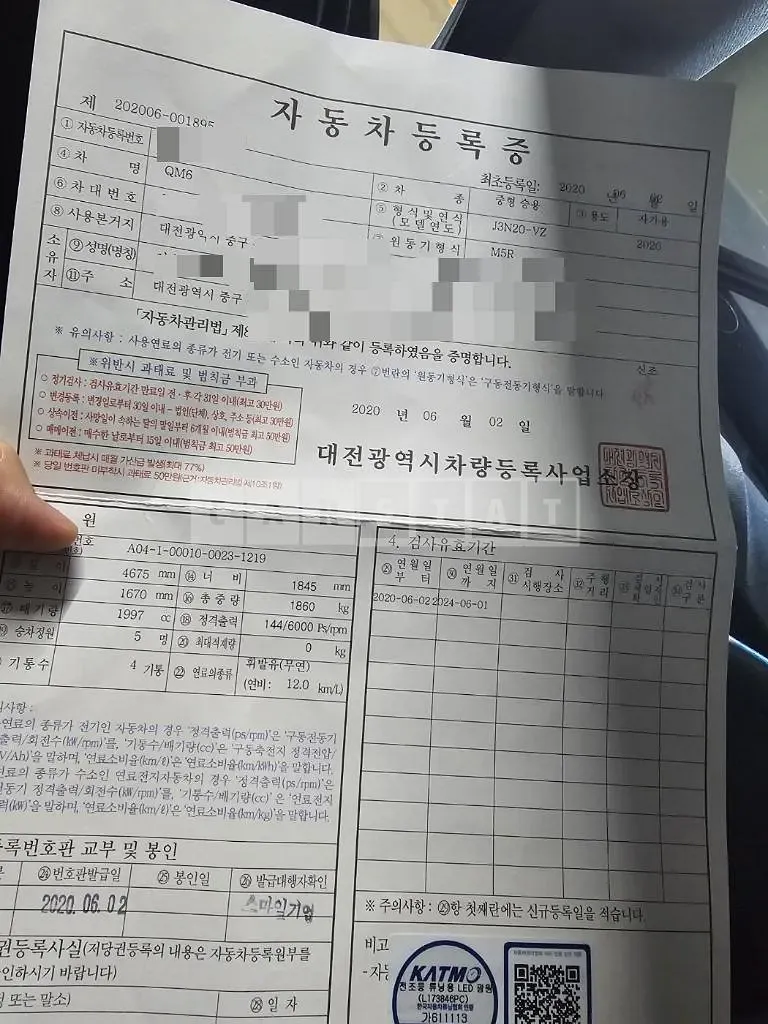 자동차등록증
제 202006-001895
최초등록일: 2020 년 06 월 02 일
① 자동차등록번호 ② 차 종 중형 승용 ③ 용도 자가용
④ 차 명 QM6 ⑤ 형식 및 연식 (모델연도) J3N20-VZ 2020
⑥ 차대번호 ⑦ 원동기형식 M5R
⑧ 사용본거지 대전광역시 중구
소유자 ⑨ 성명(명칭)
⑪ 주 소 대전광역시 중구
「자동차관리법」 제8 같이 등록하였음을 증명합니다.
※ 유의사항 : 사용연료의 종류가 전기 또는 수소인 자동차의 경우 ⑦번란의 '원동기형식'은 '구동전동기형식'을 말합니다
신조
※위반시 과태료 및 범칙금 부과
○ 정기검사 : 검사유효기간 만료일 전·후 각 31일 이내(최고 30만원)
○ 변경등록 : 변경일로부터 30일 이내 - 법인(단체), 상호, 주소 등(최고 30만원)
○ 상속이전 : 사망일이 속하는 달의 말일부터 6개월 이내(범칙금 최고 50만원)
○ 매매이전 : 매수한 날로부터 15일 이내(범칙금 최고 50만원)
※ 과태료 체납시 매월 가산금 발생(최대 77%)
※ 당일 번호판 미부착시 과태료 50만원(근거:자동차관리법 제10조1항)
2020 년 06 월 02 일
대전광역시차량등록사업소장
원
번호 A04-1-00010-0023-1219
4675 mm ⑭ 너 비 1845 mm
높이 1670 mm ⑯ 총중량 1860 kg
⑰ 배기량 1997 cc ⑱ 정격출력 144/6000 Ps/rpm
⑲ 승차정원 5 명 ⑳ 최대적재량 0 kg
기통수 4 기통 ㉒ 연료의종류 휘발유(무연)
(연비: 12.0 km/L)
4. 검사유효기간
㉙ 연월일부터 ㉚ 연월일까지 ㉛ 검사시행장소 ㉜ 주행거리
2020-06-02 2024-06-01
의사항 :
연료의 종류가 전기인 자동차의 경우 '정격출력(ps/rpm)'은 '구동전동기
출력/회전수(kW/rpm)'를, '기통수/배기량(cc)'은 '구동축전지 정격전압/
V/Ah)'을 말하며, '연료소비율(km/ℓ)'은 '연료소비율(km/kWh)'을 말합니다.
연료의 종류가 수소인 연료전지자동차의 경우 '정격출력(ps/rpm)'은
전동기 정격출력/회전수(kW/rpm)'를, '기통수/배기량(cc)'은 '연료전지
력(kW)'을 말하며, '연료소비율(km/ℓ)'은 '연료소비율(km/kg)'을 말합니다.
등록번호판 교부 및 봉인
㉔ 번호판발급일 ㉕ 봉인일 ㉖ 발급대행자확인
2020. 06. 02 스마일기업
권등록사실(저당권등록의 내용은 자동차등록원부를
인하시기 바랍니다)
정 또는 말소) ㉘ 일 자
※ 주의사항 : ㉙항 첫째란에는 신규등록일을 적습니다.
비고
- 자동
KATMO
전조등 튜닝용 LED 광원
(L173846PC)
한국자동차튜닝협회 인증
가611113